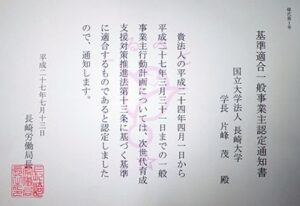 様式第3号
基準適合一般事業主認定通知書
国立大学法人 長崎大学
学長 片峰 茂 殿
貴法人の平成二十四年四月一日から
平成二十七年三月三十一日までの一般
事業主行動計画については、次世代育成
支援対策推進法第十三条に基づく基準
に適合するものであると認定しました
ので、通知します。
平成二十七年七月十三日
長崎労働局長